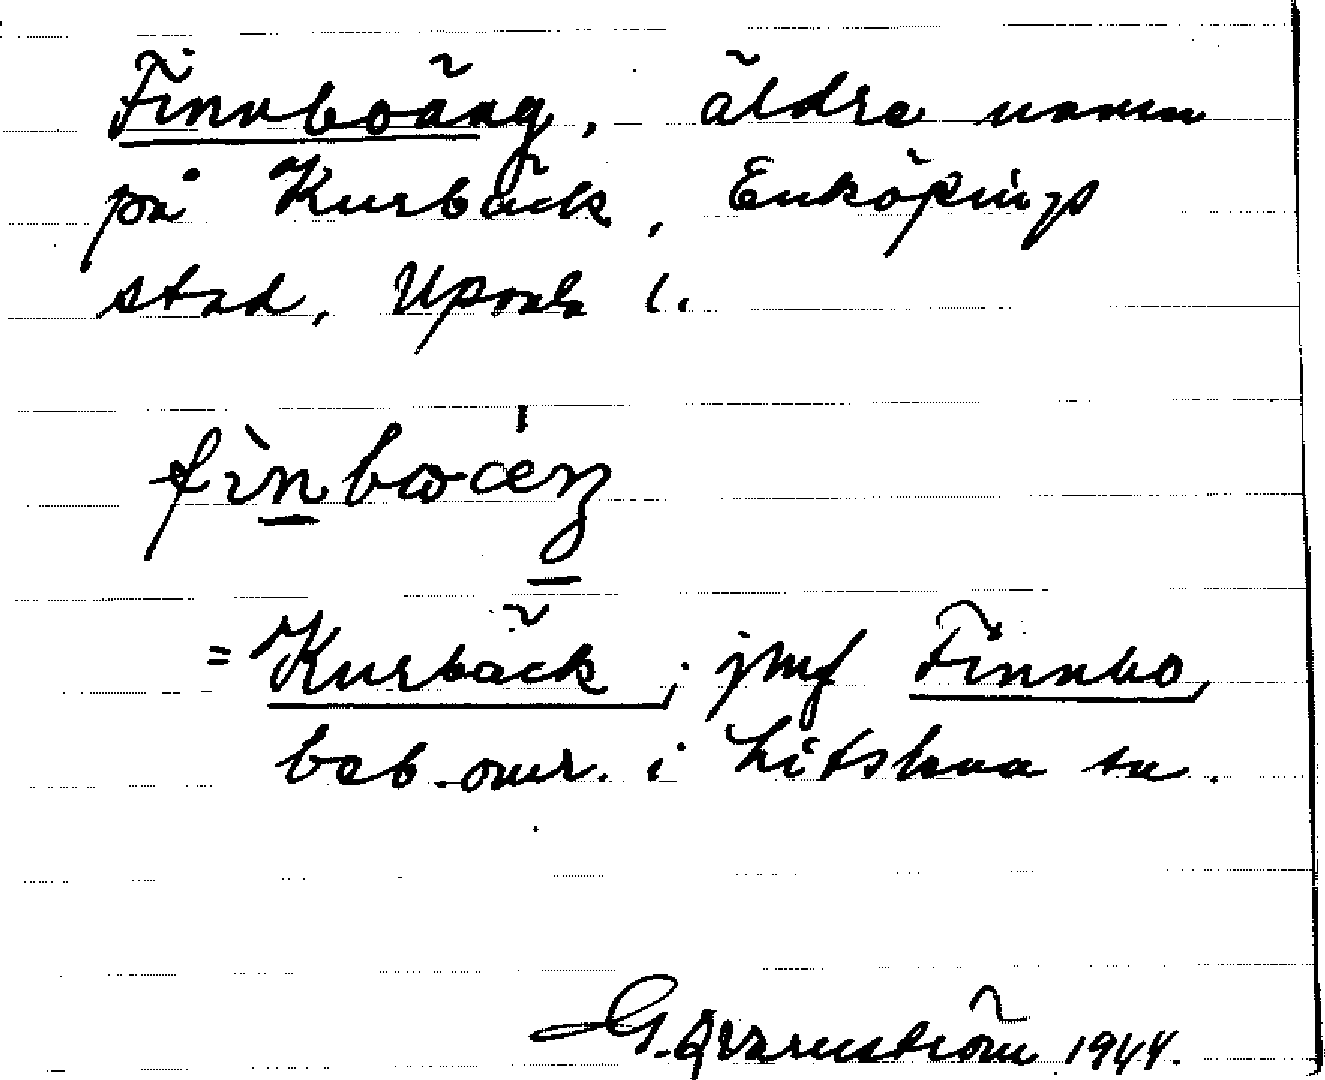 Finnboäng, äldre namn
på Kurbäck, Enköpings
stad, Upsala l.
= Kurbäck; jmf Finnbo,
beb.omr. i Litslena sn.
G. Qvarnström 1944.